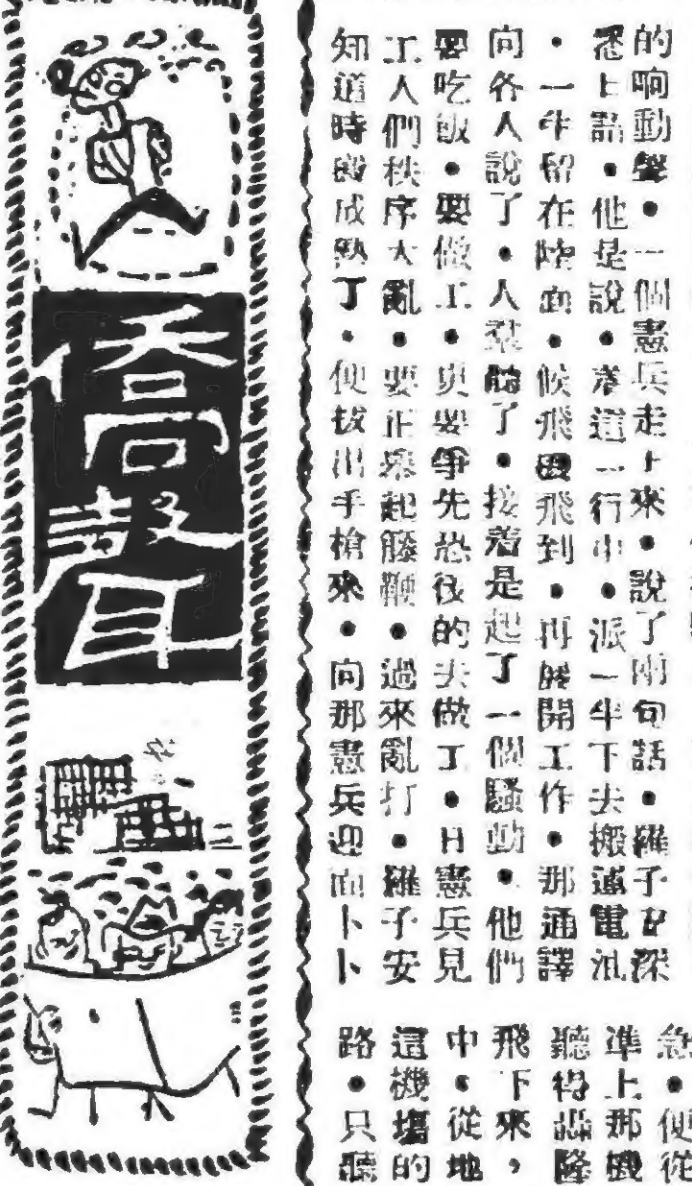 的响動聲•一個憲兵走上來•說了兩句話•羅子安深
悉日語•他是說•着這一行中•派一半下去搬運電
•一半留在陸面•候飛機飛到•再展開工作•那通譯
向各人說了•人羣動了•接着是起了一個騷動•他們
要吃飯•要做工•更要爭先恐後的去做工•日憲兵見
工人們秩序大亂•要正舉起籐鞭•過來亂打•羅子安
知道時機成熟了•便拔出手槍來•向那憲兵迎面卜卜
急•便從
準上那機
聽得轟隆
飛下來，
中•從地
這機塲的
路•只聽
僑聲